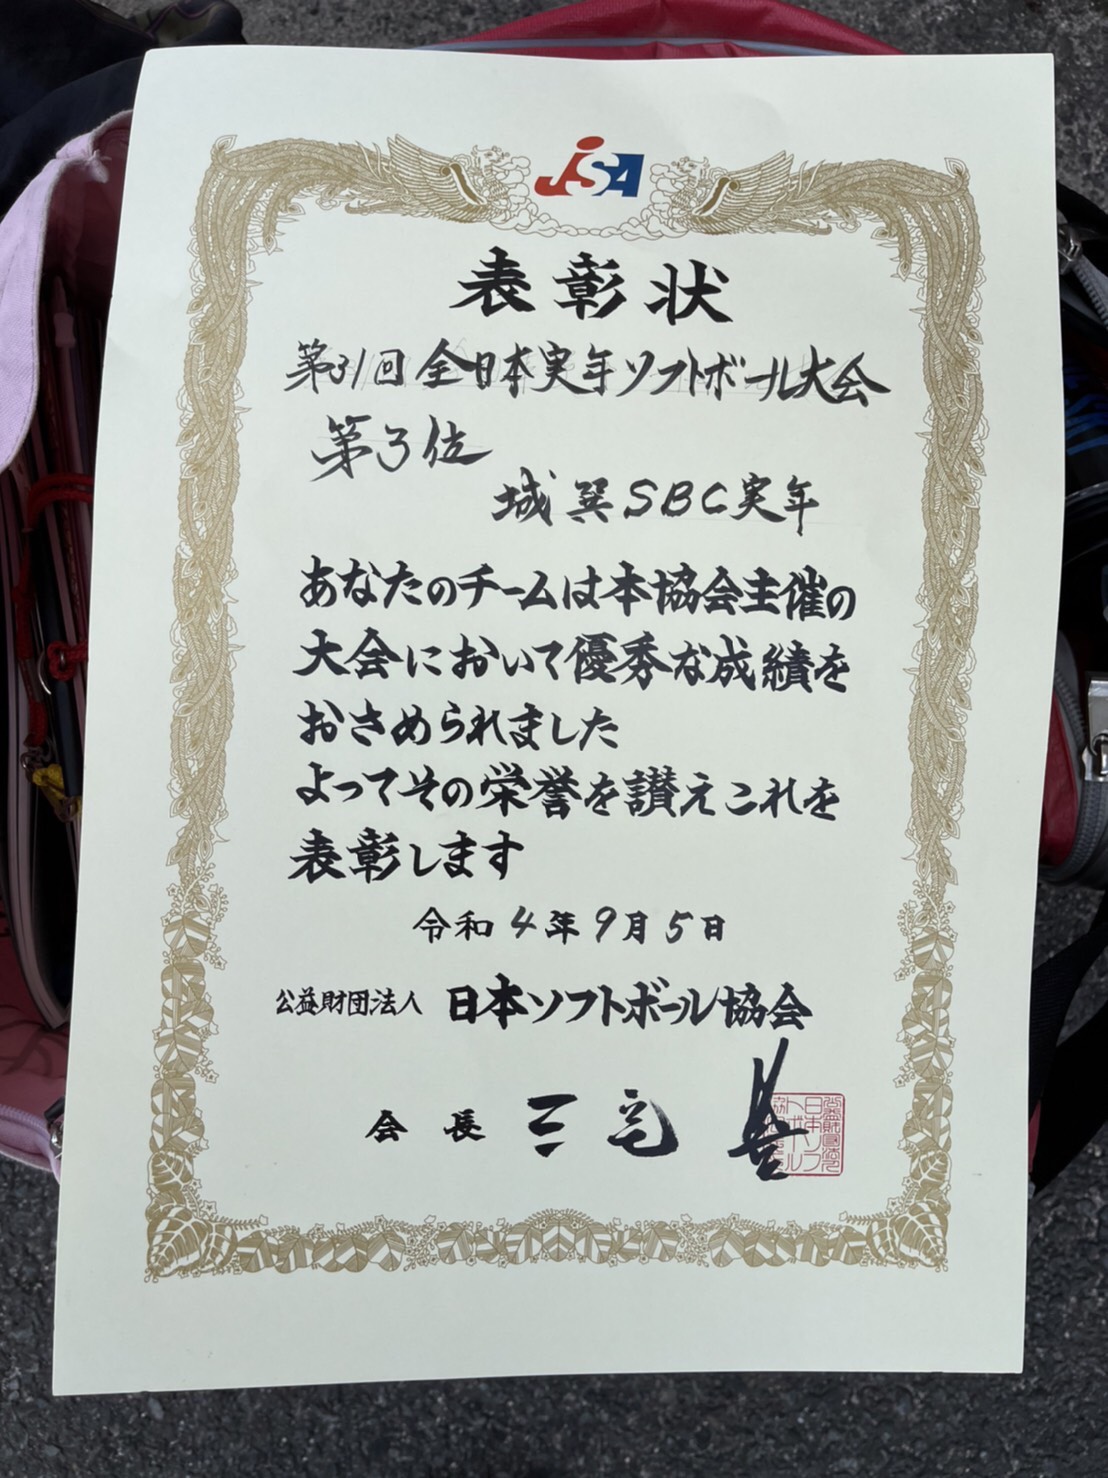 JSA
表彰状
第31回全日本実年ソフトボール大会
第3位
城巽SBC実年
あなたのチームは本協会主催の
大会において優秀な成績を
おさめられました
よってその栄誉を讃えこれを
表彰します
令和4年9月5日
公益財団法人 日本ソフトボール協会
会長 三宅